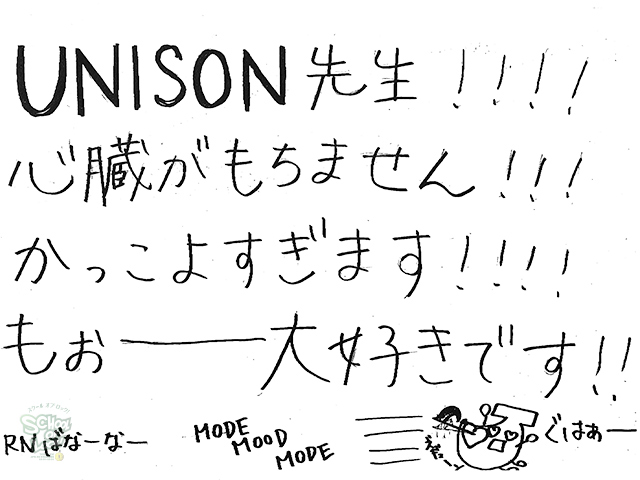 UNISON先生!!!!
心臓がもちません!!!
かっこよすぎます!!!!
もぉ――大好きです!!
RNばなーなー
MODE
MOOD
MODE
ぐはぁー